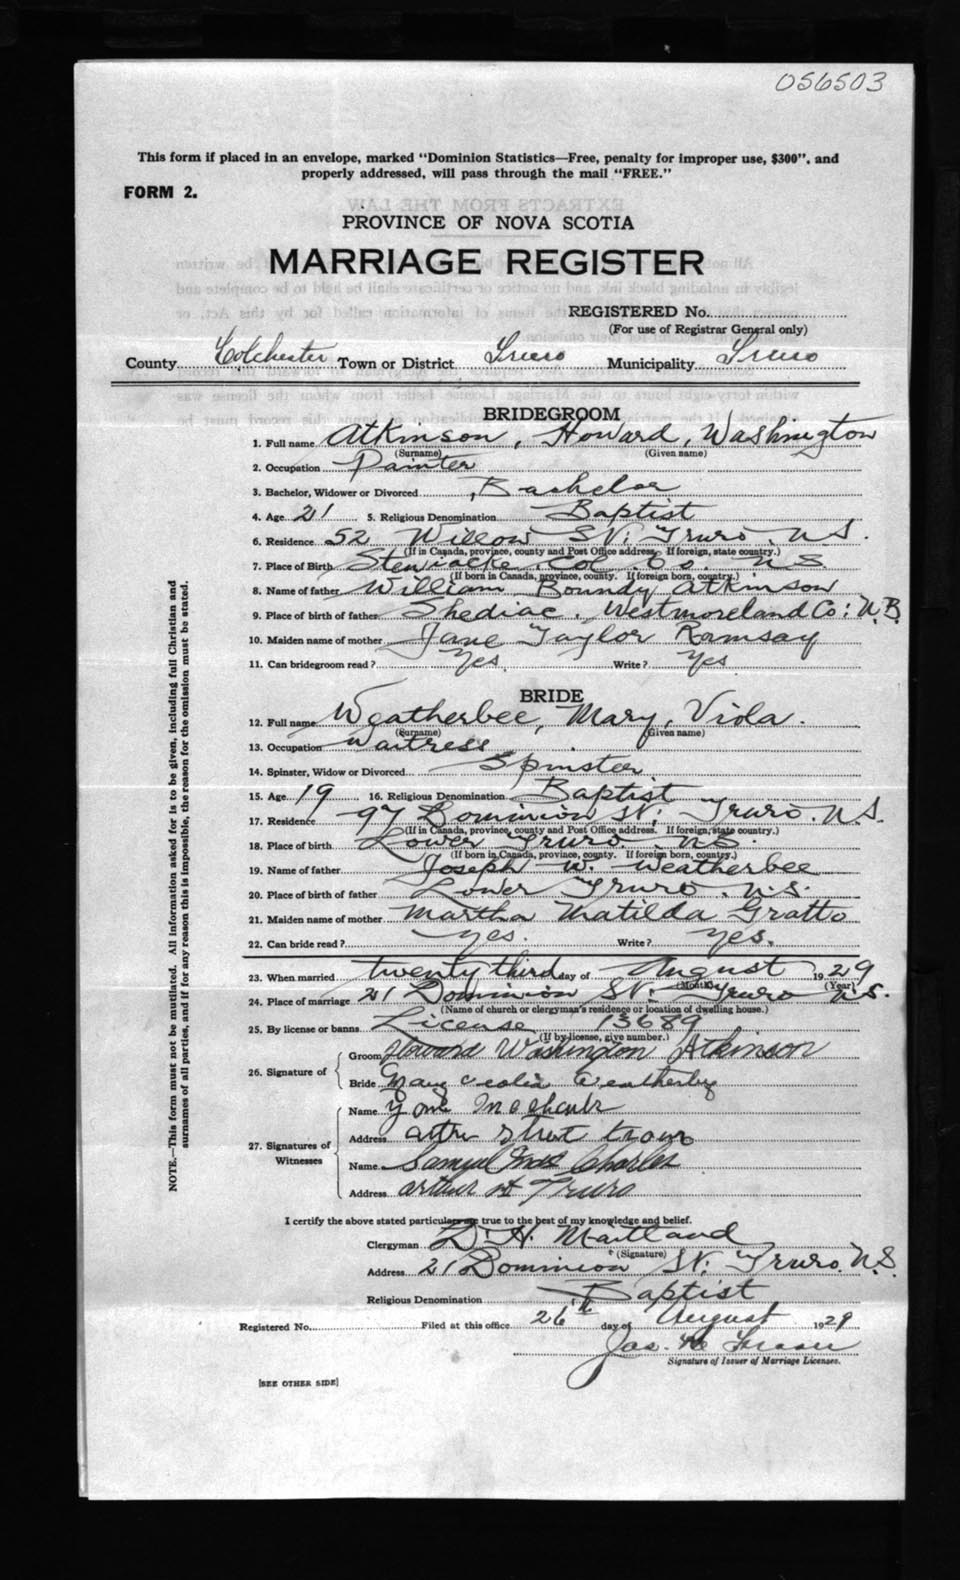 056503
This form if placed in an envelope, marked "Dominion Statistics—Free, penalty for improper use, $300", and
properly addressed, will pass through the mail "FREE."
FORM 2.
PROVINCE OF NOVA SCOTIA
MARRIAGE REGISTER
REGISTERED No.
(For use of Registrar General only)
County Colchester Town or District Truro Municipality Truro
BRIDEGROOM
1. Full name Atkinson, Howard, Washington
(Surname) (Given name)
2. Occupation Painter
3. Bachelor, Widower or Divorced Bachelor
4. Age 21 5. Religious Denomination Baptist
6. Residence 52 Willow St. Truro. N.S.
(If in Canada, province, county and Post Office address. If foreign, state country.)
7. Place of Birth Stewiacke. Col. Co. N.S.
(If born in Canada, province, county. If foreign born, country.)
8. Name of father William Boundy Atkinson
9. Place of birth of father Shediac. Westmoreland Co: N.B.
10. Maiden name of mother Jane Taylor Ramsay
11. Can bridegroom read? Yes. Write? Yes
BRIDE
12. Full name Weatherbee, Mary, Viola.
(Surname) (Given name)
13. Occupation Waitress
14. Spinster, Widow or Divorced Spinster
15. Age 19 16. Religious Denomination Baptist
17. Residence 97 Dominion St; Truro. N.S.
(If in Canada, province, county and Post Office address. If foreign, state country.)
18. Place of birth Lower Truro. N.S.
(If born in Canada, province, county. If foreign born, country.)
19. Name of father Joseph W. Weatherbee
20. Place of birth of father Lower Truro. N.S.
21. Maiden name of mother Martha Matilda Gratto
22. Can bride read? Yes. Write? Yes.
23. When married twenty third day of August 1929
(Month) (Year)
24. Place of marriage 21 Dominion St: Truro N.S.
(Name of church or clergyman's residence or location of dwelling house.)
25. By license or banns License 13689
(If by license, give number.)
26. Signature of
Groom Howard Washington Atkinson
Bride Mary Weatherby
27. Signatures of Witnesses
Name
Address street
Name Samyul Charles
Address arthur st Truro
I certify the above stated particulars are true to the best of my knowledge and belief.
Clergyman D. H. Maitland
(Signature)
Address 21 Dominion St: Truro. N.S.
Religious Denomination Baptist
Registered No. Filed at this office 26th day of August 1929
Jas.
Signature of Issuer of Marriage Licenses.
[SEE OTHER SIDE]
NOTE.—This form must not be mutilated. All information asked for is to be given, including full Christian and
surnames of all parties, and if for any reason this is impossible, the reason for the omission must be stated.